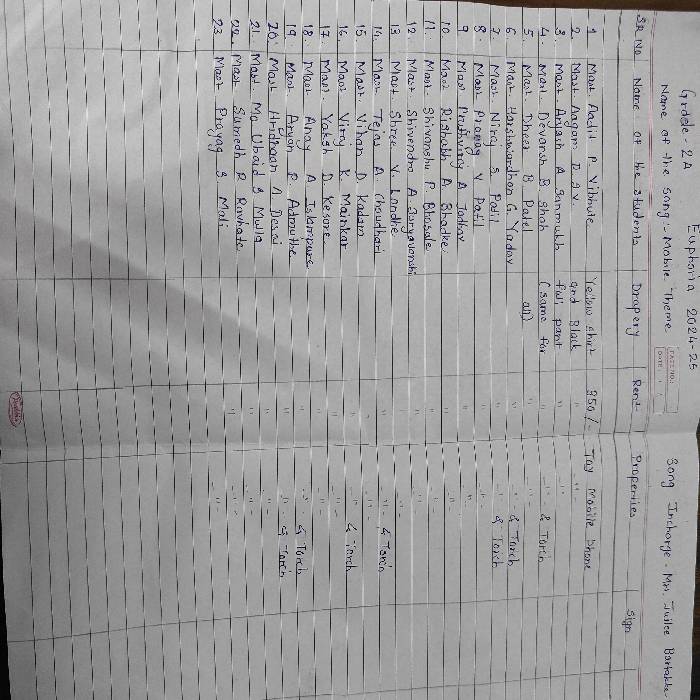 Euphoria 2024-25
Grade - 2A
Name of the song - Mobile Theme
Song Incharge - Mrs. Juilee Bartakke
PAGE NO.
DATE
SR No Name of the students Drapery Rent Properties Sign
1 Mast Aadit P. Vibhute Yellow shirt 350/- Toy Mobile phone
2. Mast Aagam D and Black " - " -
3. Mast Angsh A Sanmukh full pant " - " -
4. Mast. Devansh B Shah (same for " - " - & Torch
5. Mast Dhver B Patel all) " - " -
6 Mast Harshvardhan G. Yadav " - " - & Torch
7. Mast Niraj S Patil " - " - & Torch
8. Mast Pranag V Patil " - " -
9 Mast Prithviraj A Jadhav " - " -
10. Mast Rishabh A. Bhadke " - " -
11. Mast Shivanshu P. Bhosale " - " -
12. Mast Shivendra A Suryavanshi " - " -
13 Mast Shree V. Londhe " - " -
14. Mast Tejas A Choudhari " - " - & Torch
15 Mast Vihan D. Kadam " - " -
16. Mast Viraj K Mainkar " - " - & Torch
17. Mast. Yaksh D. Kesare " - " -
18. Mast Anay A Islampure " - " - & Torch
19. Mast Aryan R. Admuthe " - " - & Torch
20. Mast Hridhaan A Desai " - " -
21. Mast. Mo Ubaid S Mulla " - " -
22. Mast Sumedh R Ravhate " - " -
23 Mast Prayag S. Mali " - " -